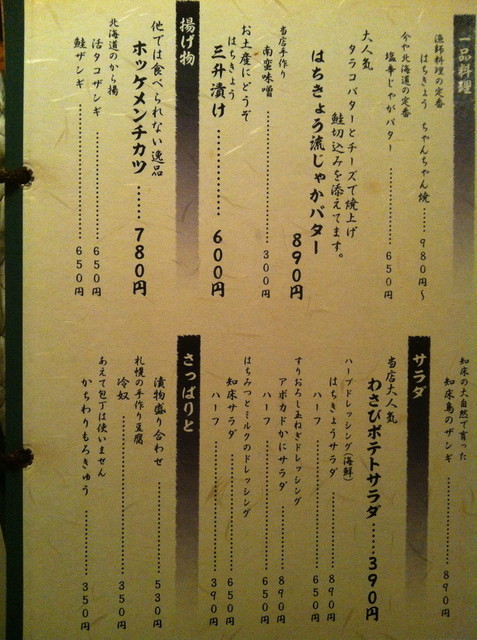 一品料理
漁師料理の定番
はちきょう ちゃんちゃん焼 …… 980円～
今や北海道の定番
塩辛じゃがバター ………… 650円
大人気
タラコバターとチーズで焼上げ
鮭切込みを添えてます。
はちきょう流じゃがバター
890円
当店手作り
南蛮味噌 ………… 300円
お土産にどうぞ
はちきょう
三升漬け ………… 600円
揚げ物
他では食べられない逸品
ホッケメンチカツ …… 780円
北海道のから揚
活タコザンギ ………… 650円
鮭ザンギ ………… 650円
知床の大自然で育った
知床鳥のザンギ ………… 890円
サラダ
当店大人気
わさびポテトサラダ …… 390円
ハーブドレッシング(海鮮)
はちきょうサラダ ………… 890円
ハーフ ………… 650円
すりおろし玉ねぎドレッシング
アボカドかにサラダ ………… 890円
ハーフ ………… 650円
はちみつとミルクのドレッシング
知床サラダ ………… 650円
ハーフ ………… 390円
さっぱりと
漬物盛り合わせ ………… 530円
札幌の手作り豆腐
冷奴 ………… 350円
あえて包丁は使いません
かちわりもろきゅう ………… 350円